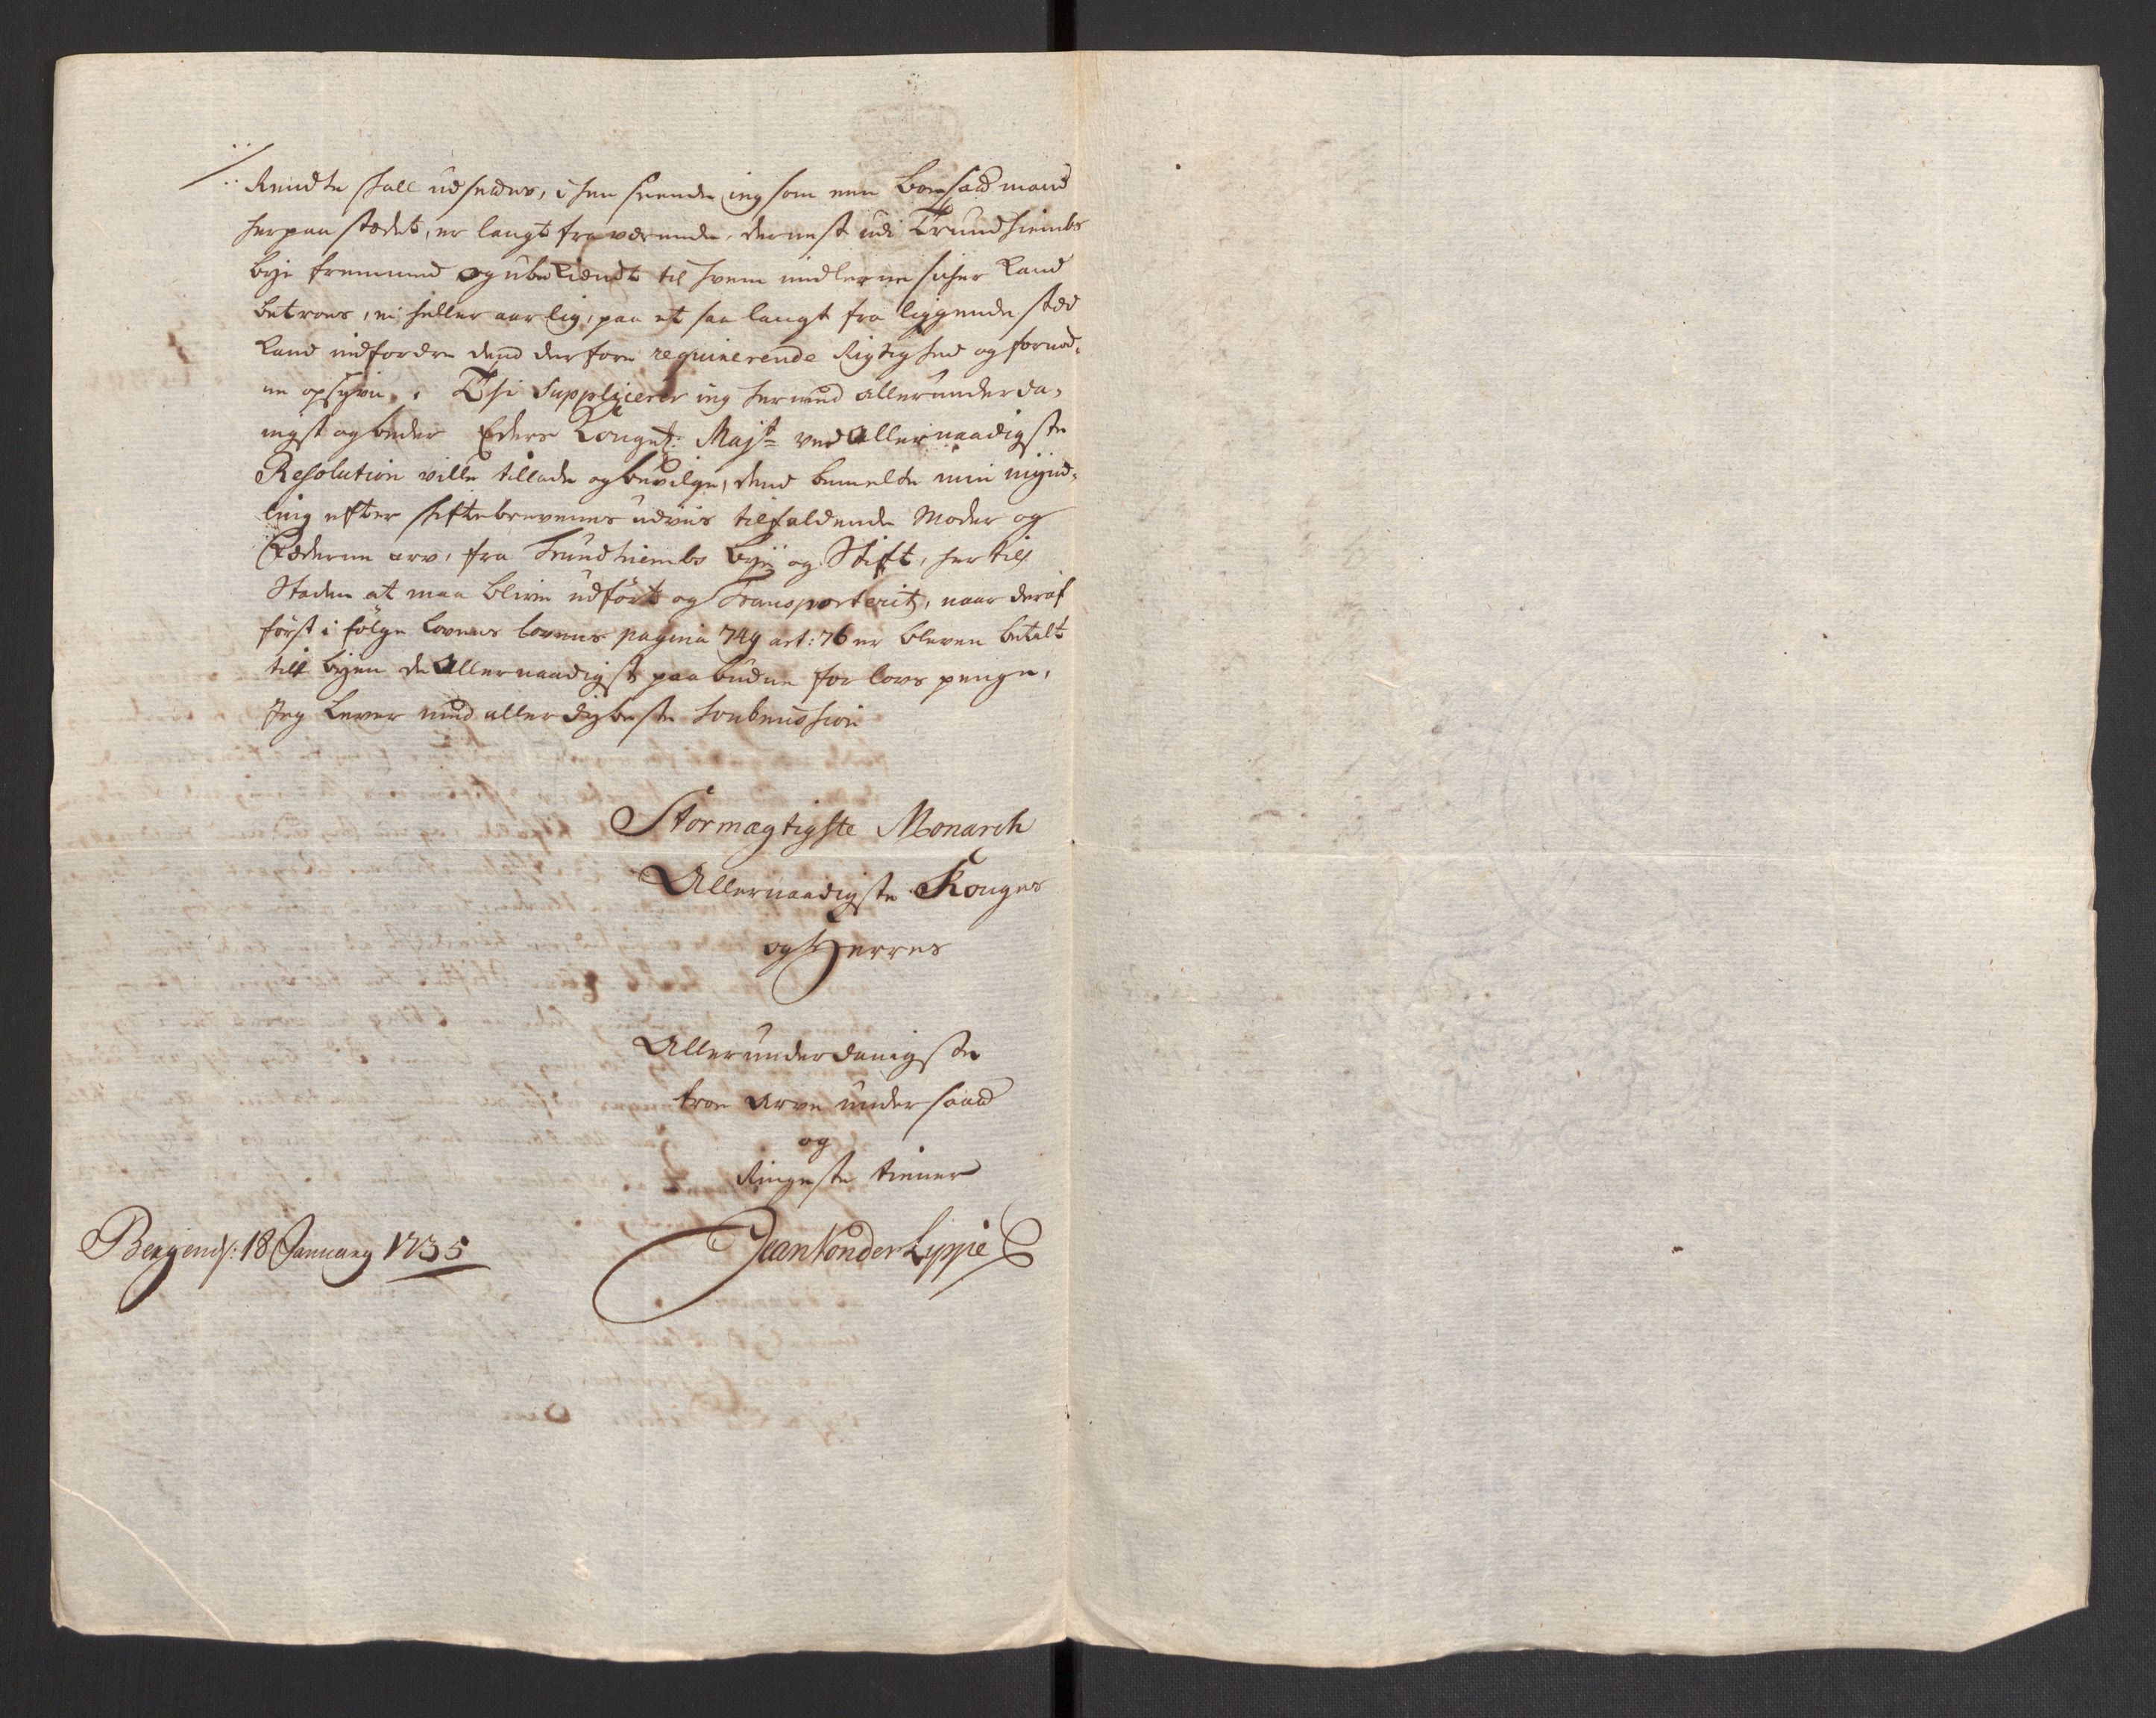 Rendte skall udsættes, i hen seende ieg som een boesadd mand
her paa stædet, er langt fra værende, dernest udi Trundhiembs
bye fremmed og ubekiendt til hvem midlerne sicher kand
betroes, ei heller aarlig, paa et saa langt fra liggende stæd
kand indfordre dend derfore requirerende Rigtighed og fornød,
ne opsyn. Thi Supplicerer ieg hermed allerunderda,
nigst og beder Eders Kongel: Majt: ved Allernaadigste
Resolution ville tillade og bevilge, dend bemelte min mynd,
ling efter skiftebrevenes udviis tilfaldende Moder og
Fæderne arv, fra Trundhiembs bye og Stift, her til
Staden at maa blive udført og Transporterit, naar deraf
först i følge lovens lovens pagina 749 art: 76 er bleven betalt
till byen de Allernaadigst paabudne forlovs penge,
Jeg lever med allerdybeste Soubmission
Stormægtigste Monarch
Allernaadigste Konges
og Herres
Allerunderdanigste
troe Arve undersaadt
og
Ringeste tiener
Bergen d: 18 January 1735
Jean Von der Lippe